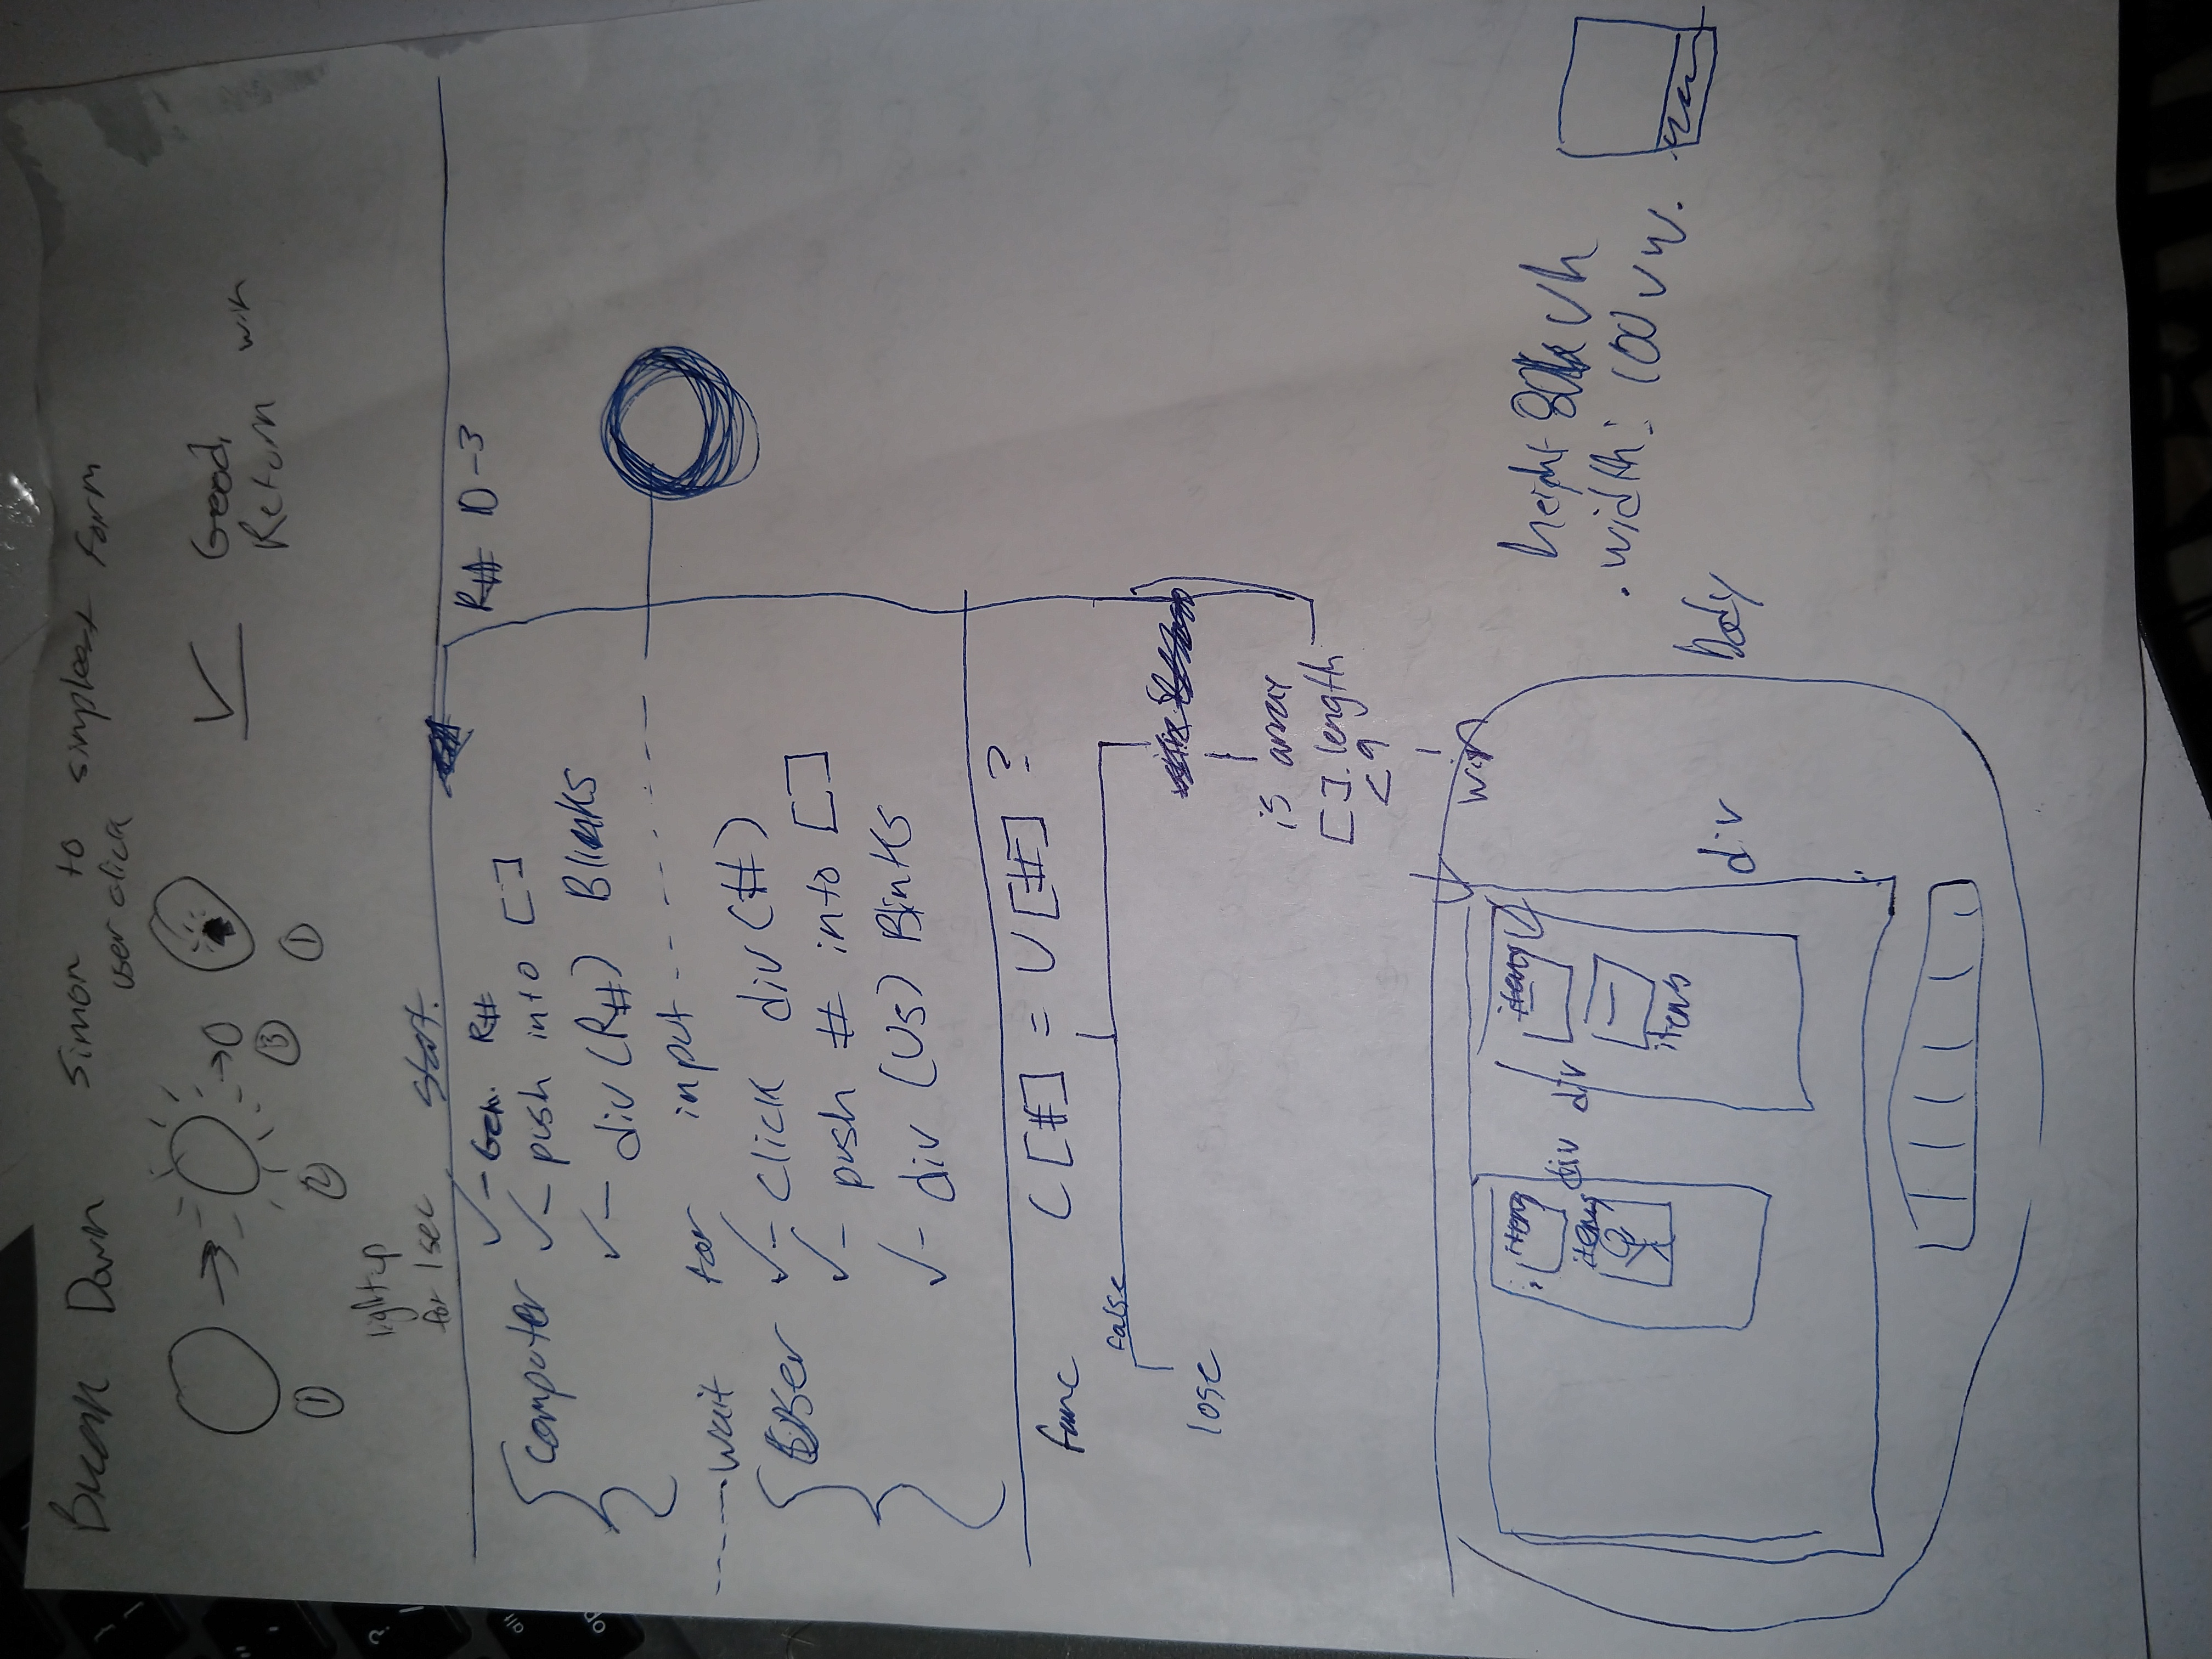 Break Down Simon to simplest form
user click
① → ② → ③ ①
✓ Good,
Return win
light up
for 1 sec
start.
✓ - Gen. R#
R# 0-3
computer ✓ - push into []
✓ - div (R#) Blinks
----- wait for input -----
User ✓ - click div (#)
✓ - push # into []
✓ - div (Us) Blinks
func C [#] = U [#] ?
false
lose
is array
[].length
< 9
win
items
items
div
items
div
items
div
Body
height 80 vh
. width: 100 vw.